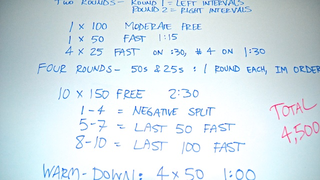 TWO ROUNDS - ROUND 1 = LEFT INTERVALS
ROUND 2 = RIGHT INTERVALS
1 × 100 MODERATE FREE
1 × 50 FAST 1:15
4 × 25 FAST ON :30, #4 ON 1:30
FOUR ROUNDS - 50s & 25s : 1 ROUND EACH, IM ORDER
10 × 150 FREE 2:30
1-4 = NEGATIVE SPLIT
5-7 = LAST 50 FAST
8-10 = LAST 100 FAST
TOTAL
4,500
WARM-DOWN: 4 × 50 1:00